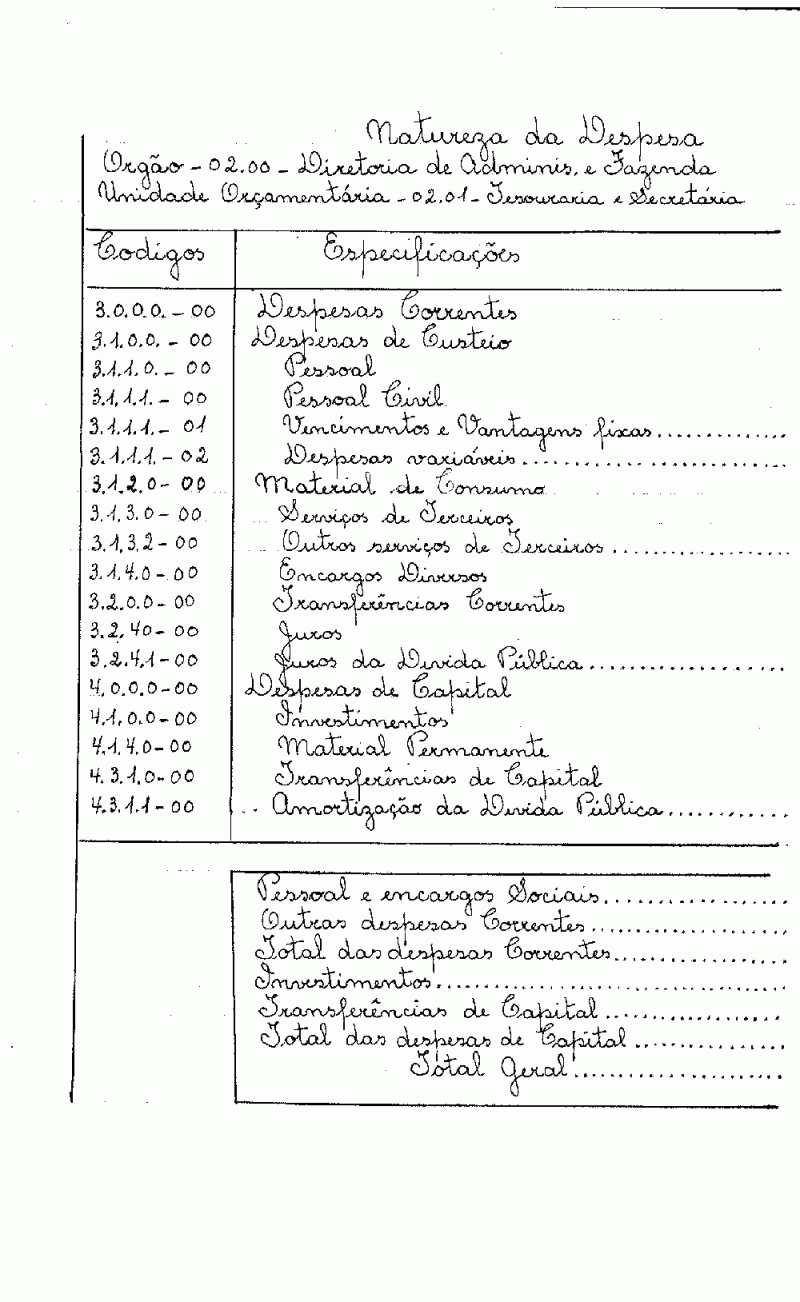 Natureza da Despesa
Orgão - 02.00 - Diretoria de Adminis. e Fazenda
Unidade Orçamentária - 02.01 - Tesouraria e Secretária
Codigos Especificações
3.0.0.0. - 00 Despesas Correntes
3.1.0.0. - 00 Despesas de Custeio
3.1.1.0. - 00 Pessoal
3.1.1.1. - 00 Pessoal Civil
3.1.1.1. - 01 Vencimentos e Vantagens fixas..............
3.1.1.1. - 02 Despesas variáveis..........................
3.1.2.0 - 00 Material de Consumo
3.1.3.0 - 00 Serviços de Terceiros
3.1.3.2 - 00 Outros serviços de Terceiros..................
3.1.4.0 - 00 Encargos Diversos
3.2.0.0 - 00 Transferências Correntes
3.2.40 - 00 Juros
3.2.4.1 - 00 Juros da Divida Pública....................
4.0.0.0 - 00 Despesas de Capital
4.1.0.0 - 00 Investimentos
4.1.4.0 - 00 Material Permanente
4.3.1.0 - 00 Transferências de Capital
4.3.1.1 - 00 Amortização da Divida Pública............
Pessoal e encargos Sociais...................
Outras despesas Correntes....................
Total das despesas Correntes.................
Investimentos...................................
Transferências de Capital..................
Total das despesas de Capital...............
Total Geral.....................